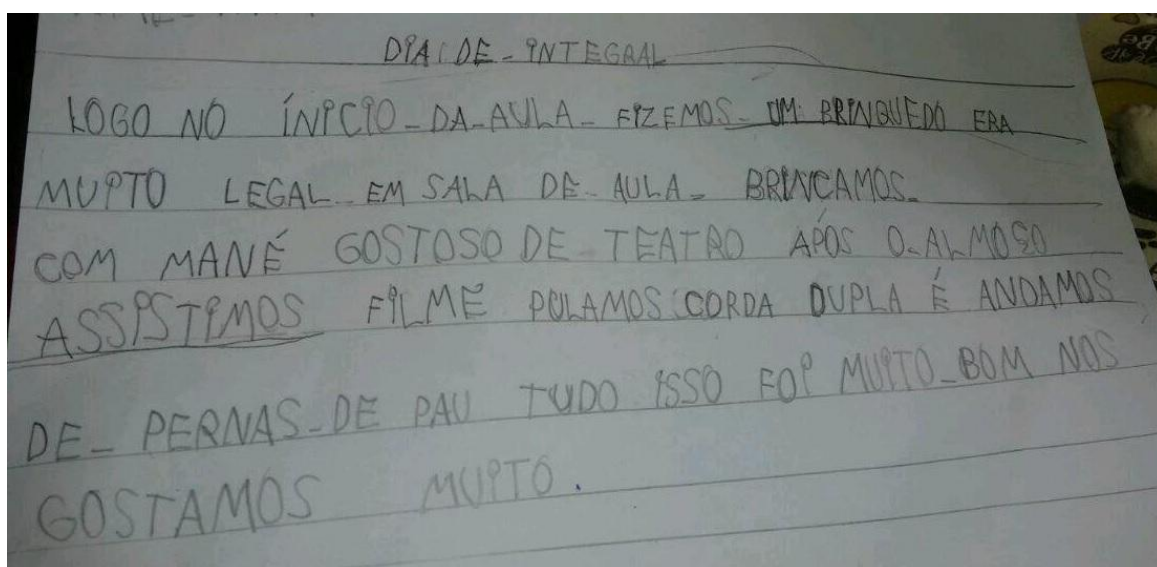 DIA DE - INTEGRAL
LOGO NO ÍNICIO - DA - AULA - FIZEMOS - UM BRINQUEDO ERA
MUITO LEGAL - EM SALA DE - AULA - BRINCAMOS -
COM MANÉ GOSTOSO DE - TEATRO APÓS O - ALMOSO
ASSISTIMOS FILME PULAMOS CORDA DUPLA É ANDAMOS
DE - PERNAS - DE PAU TUDO ISSO FOI MUITO - BOM NOS
GOSTAMOS MUITO .